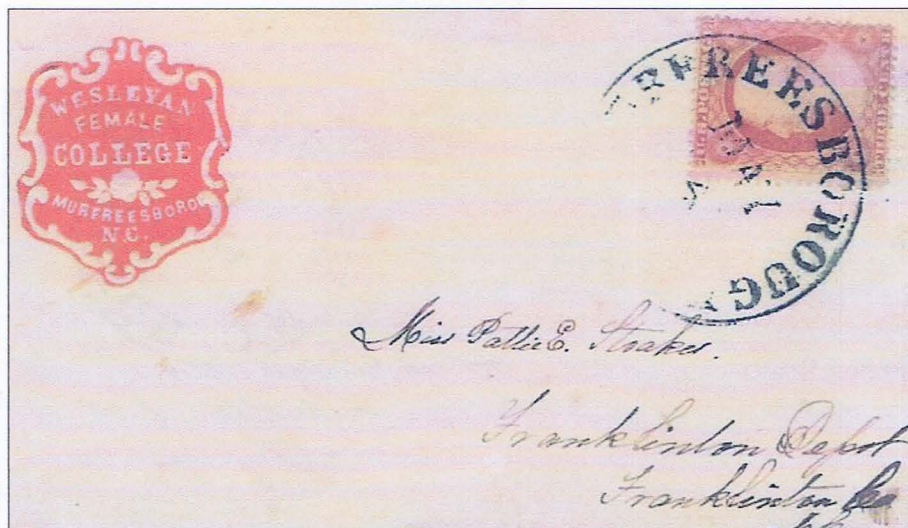 WESLEYAN
FEMALE
COLLEGE
MURFREESBORO
N.C.
RFREESBOROUG
Miss Pattie E. Stoakes.
Franklinton Depot
Franklinton Co